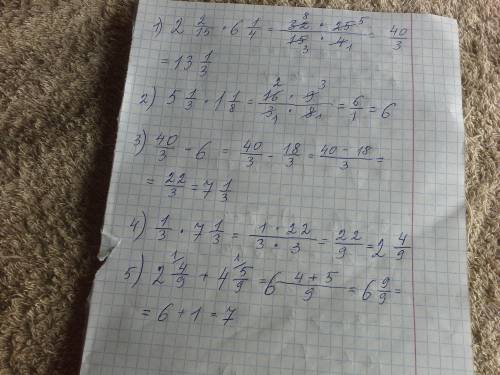 1) 2 2/15 · 6 1/4 = 32 8 · 25 5 / 15 3 · 4 1 = 40/3
= 13 1/3
2) 5 1/3 · 1 1/8 = 16 2 · 9 3 / 3 1 · 8 1 = 6/1 = 6
3) 40/3 - 6 = 40/3 - 18/3 = 40 - 18 / 3 =
= 22/3 = 7 1/3
4) 1/3 · 7 1/3 = 1 · 22 / 3 · 3 = 22/9 = 2 4/9
5) 2 4/9 + 4 5/9 = 6 4 + 5 / 9 = 6 9/9 =
= 6 + 1 = 7